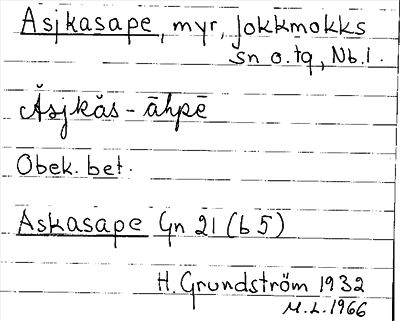 Asjkasape, myr, Jokkmokks
sn o. tg, Nb. l.
Ăsjkăs-āhpē
Obek. bet.
Askasape Gn 21 (b 5)
H. Grundström 1932
M. L. 1966